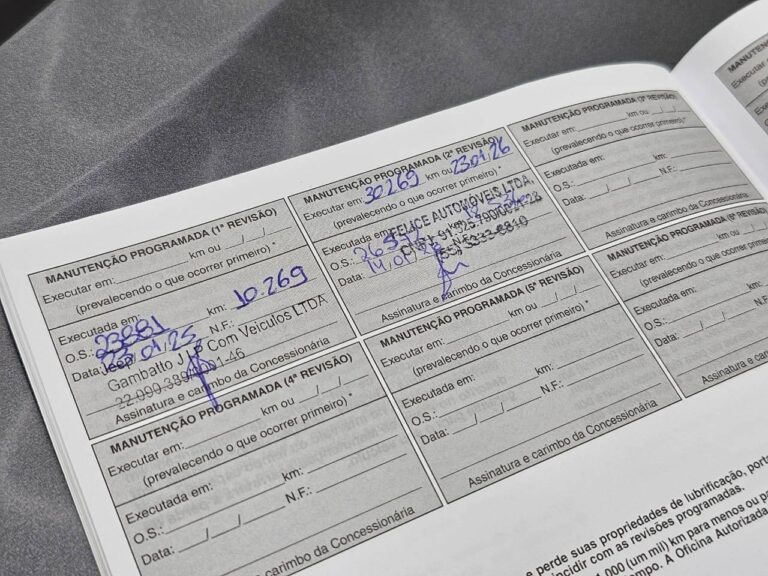 MANUTENÇÃO PROGRAMADA (1ª REVISÃO)
Executar em: km ou __/__/__
(prevalecendo o que ocorrer primeiro) *
Executada em:
O.S.: 23881 km: 10.269
Data: 23/01/25 N.F.:
Jeep
Gambatto J Com Veiculos LTDA
Assinatura e carimbo da Concessionária
MANUTENÇÃO PROGRAMADA (2ª REVISÃO)
Executar em: 30269 km ou 23.01.26
(prevalecendo o que ocorrer primeiro) *
Executada em:
FELICE AUTOMÓVEIS LTDA.
O.S.:
Data:
(55) 3333-8810
Assinatura e carimbo da Concessionária
MANUTENÇÃO PROGRAMADA (3ª REVISÃO)
Executar em: km ou __/__/__
(prevalecendo o que ocorrer primeiro) *
Executada em:
O.S.: km:
Data: __/__/__ N.F.:
Assinatura e carimbo da Concessionária
MANUTENÇÃO PROGRAMADA (4ª REVISÃO)
Executar em: km ou __/__/__
(prevalecendo o que ocorrer primeiro) *
Executada em:
O.S.: km:
Data: __/__/__ N.F.:
Assinatura e carimbo da Concessionária
MANUTENÇÃO PROGRAMADA (5ª REVISÃO)
Executar em: km ou __/__/__
(prevalecendo o que ocorrer primeiro) *
Executada em:
O.S.: km:
Data: __/__/__ N.F.:
Assinatura e carimbo da Concessionária
MANUTENÇÃO PROGRAMADA (6ª REVISÃO)
Executar em: km ou
(prevalecendo o que ocorrer primeiro)
Executada em:
O.S.:
Data: __/__/__
Assinatura e carimbo da
MANUTENÇÃO
Executar em:
(prevalec
e perde suas propriedades de lubrificação, port
incidir com as revisões programadas.
1.000 (um mil) km para menos ou p
mpo. A Oficina Autorizada